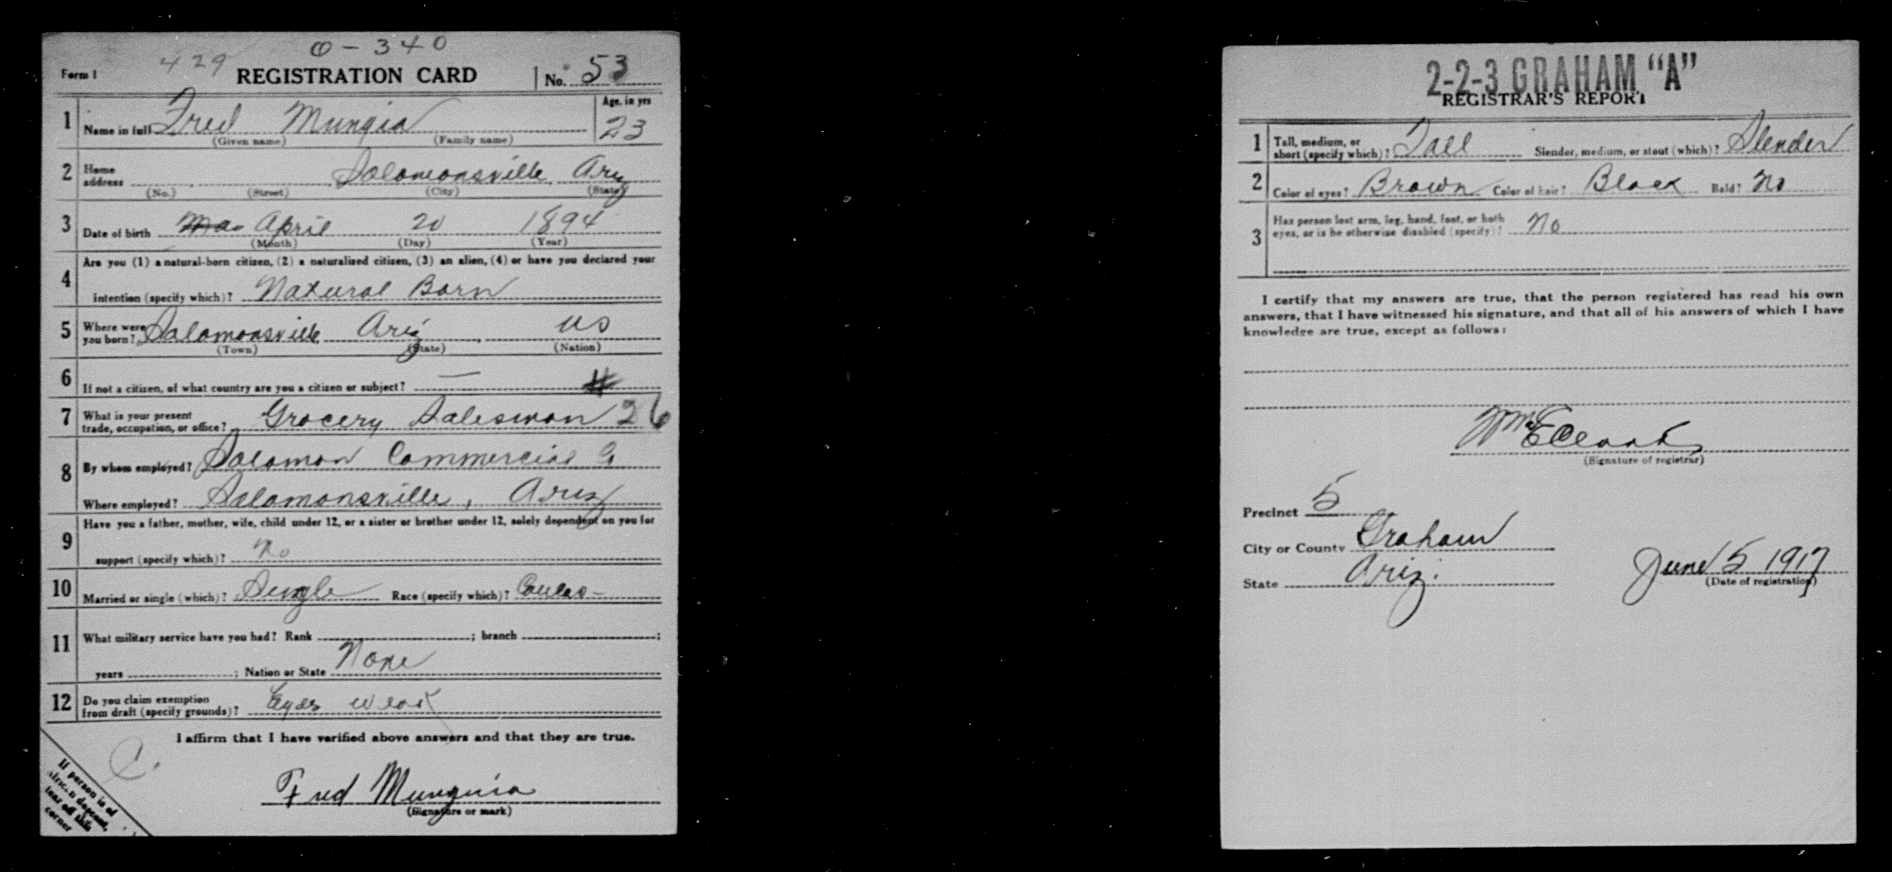 O-340
429
Form 1 REGISTRATION CARD No. 53
1 Name in full Fred Mungia Age, in yrs 23
(Given name) (Family name)
2 Home address Solomonsville Ariz
(No.) (Street) (City) (State)
3 Date of birth April 20 1894
(Month) (Day) (Year)
4 Are you (1) a natural-born citizen, (2) a naturalized citizen, (3) an alien, (4) or have you declared your
intention (specify which)? Natural Born
5 Where were you born? Solomonsville Ariz US
(Town) (State) (Nation)
6 If not a citizen, of what country are you a citizen or subject? —
7 What is your present trade, occupation, or office? Grocery Salesman 26
8 By whom employed? Solomon Commercial Co
Where employed? Solomonsville, Ariz
9 Have you a father, mother, wife, child under 12, or a sister or brother under 12, solely dependent on you for
support (specify which)? No
10 Married or single (which)? Single Race (specify which)? Caucas-
11 What military service have you had? Rank ; branch ;
years ; Nation or State None
12 Do you claim exemption from draft (specify grounds)? Eyes weak
I affirm that I have verified above answers and that they are true.
C.
Fred Munguia
(Signature or mark)
If person is of
African descent,
tear off this
corner
2-2-3 GRAHAM "A"
REGISTRAR'S REPORT
1 Tall, medium, or short (specify which)? Tall Slender, medium, or stout (which)? Slender
2 Color of eyes? Brown Color of hair? Black Bald? No
3 Has person lost arm, leg, hand, foot, or both
eyes, or is he otherwise disabled (specify)? No
I certify that my answers are true, that the person registered has read his own
answers, that I have witnessed his signature, and that all of his answers of which I have
knowledge are true, except as follows:
(Signature of registrar)
Precinct 5
City or County Graham
State Ariz. June 5 1917
(Date of registration)